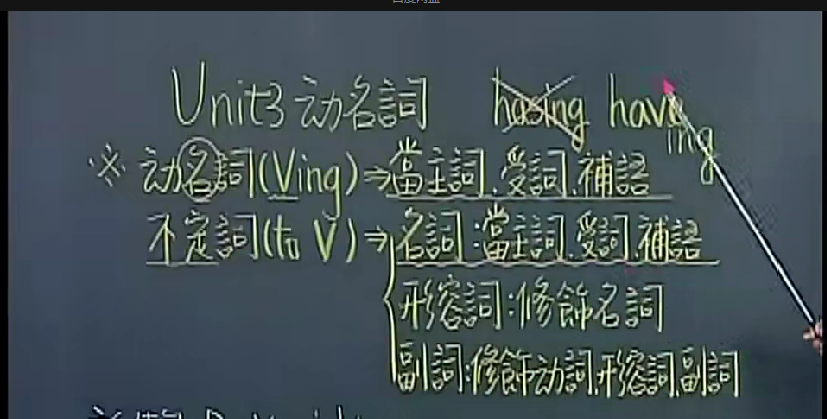 Unit3 动名詞 hasing having
※ 动名詞(Ving)⇒當主詞.受詞.補語
不定詞(to V)⇒名詞:當主詞.受詞.補語
形容詞:修飾名詞
副詞:修飾动詞.形容詞.副詞